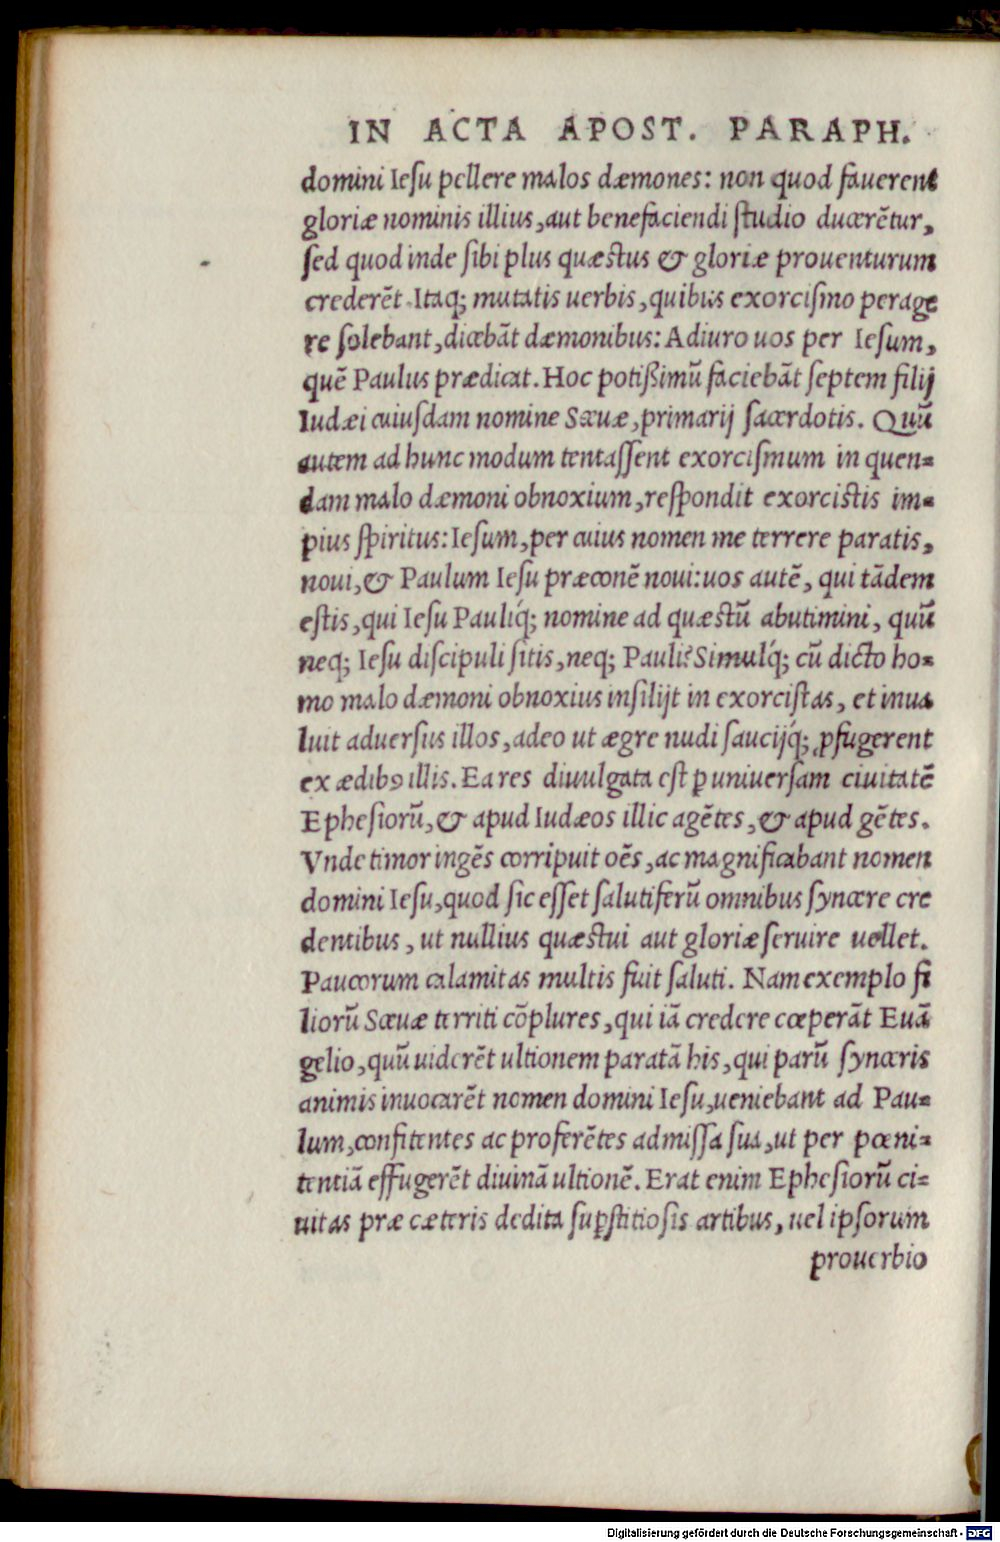 IN ACTA APOST. PARAPH.
domini Iesu pellere malos dæmones: non quod fauerent
gloriæ nominis illius, aut benefaciendi studio ducerẽtur,
sed quod inde sibi plus quæstus & gloriæ prouenturum
crederẽt. Itaq; mutatis uerbis, quibus exorcismo perage
re solebant, dicebãt dæmonibus: Adiuro uos per Iesum,
quẽ Paulus prædicat. Hoc potißimũ faciebãt septem filij
Iudæi cuiusdam nomine Scæuæ, primarij sacerdotis. Quũ
autem ad hunc modum tentassent exorcismum in quen=
dam malo dæmoni obnoxium, respondit exorcistis im=
pius spiritus: Iesum, per cuius nomen me terrere paratis,
noui, & Paulum Iesu præconẽ noui: uos autẽ, qui tãdem
estis, qui Iesu Pauliq́; nomine ad quæstũ abutimini, quũ
neq; Iesu discipuli sitis, neq; Pauli? Simulq́; cũ dicto ho=
mo malo dæmoni obnoxius insilijt in exorcistas, et inua
luit aduersus illos, adeo ut ægre nudi saucijq́; ꝓfugerent
ex ædibꝰ illis. Ea res diuulgata est ꝑ uniuersam ciuitatẽ
Ephesiorũ, & apud Iudæos illic agẽtes, & apud gẽtes.
Vnde timor ingẽs corripuit oẽs, ac magnificabant nomen
domini Iesu, quod sic esset salutiferũ omnibus syncere cre
dentibus, ut nullius quæstui aut gloriæ seruire uellet.
Paucorum calamitas multis fuit saluti. Nam exemplo fi
liorũ Sceuæ territi cõplures, qui iã credere cœperãt Euã
gelio, quũ uiderẽt ultionem paratã his, qui parũ synceris
animis inuocarẽt nomen domini Iesu, ueniebant ad Pau=
lum, confitentes ac proferẽtes admissa sua, ut per pœni=
tentiã effugerẽt diuinã ultionẽ. Erat enim Ephesiorũ ci=
uitas præ cæteris dedita suꝑstitiosis artibus, uel ipsorum
prouerbio
Digitalisierung gefördert durch die Deutsche Forschungsgemeinschaft - DFG